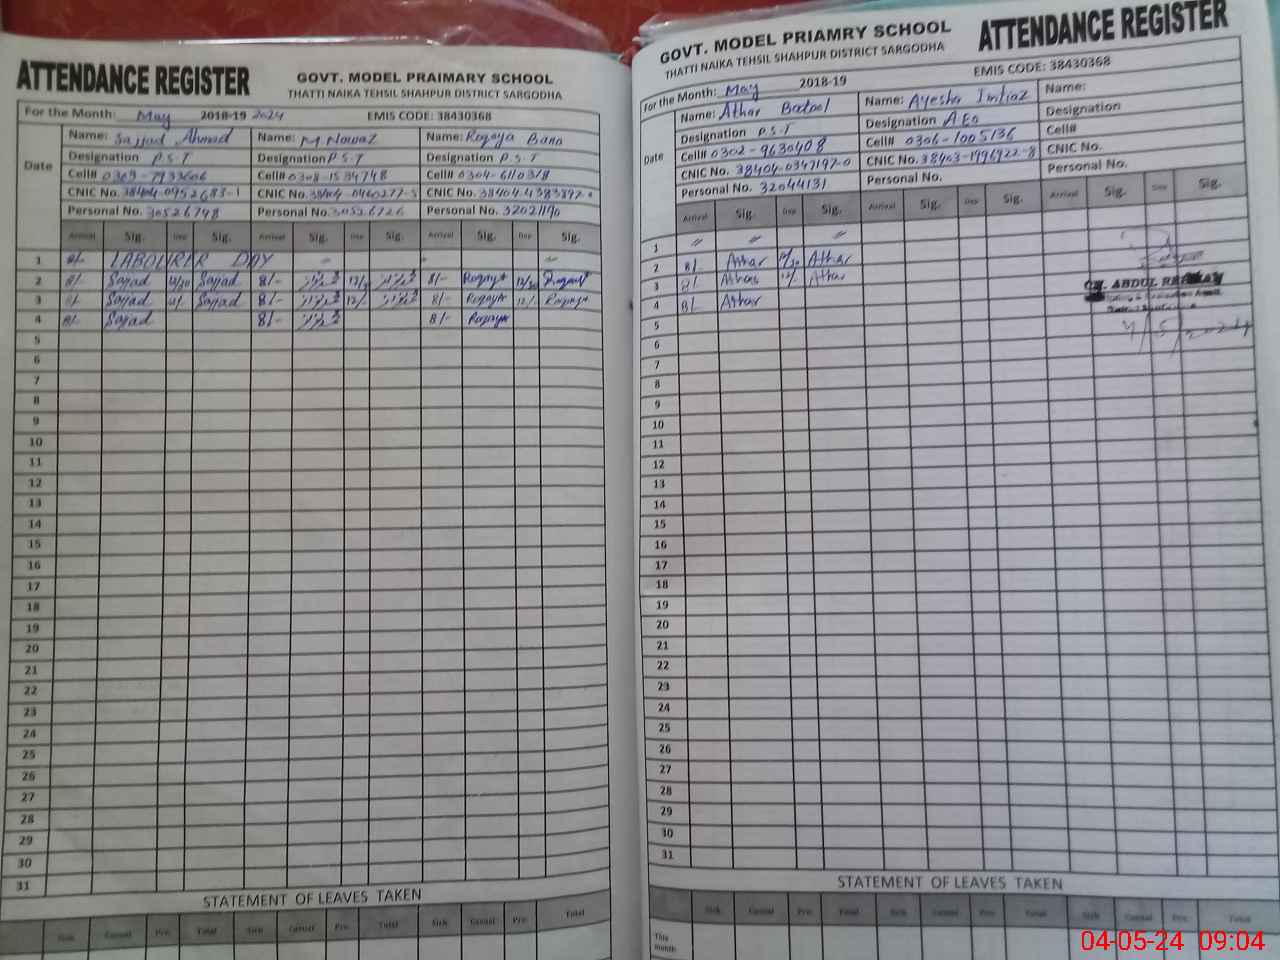 ATTENDANCE REGISTER
GOVT. MODEL PRAIMARY SCHOOL
THATTI NAIKA TEHSIL SHAHPUR DISTRICT SARGODHA
For the Month: May 2018-19 2024 EMIS CODE: 38430368
Date
Name: Sajjad Ahmad Name: M Nawaz Name: Roqaya Bano
Designation P.S.T Designation P.S.T Designation P.S.T
Cell# Cell# 0308-1534748 Cell# 0304-6110318
CNIC No. 38404-0952683-1 CNIC No. CNIC No.
Personal No. 30526748 Personal No. 30526726 Personal No.
Arrival Sig. Dep Sig. Arrival Sig. Dep Sig. Arrival Sig. Dep Sig.
1 8/- LABOURER DAY
2 8/- Sajjad 12/30 Sajjad 8/- 8/- Roqaya 12/30 Roqaya
3 8/- Sajjad 12/- Sajjad 8/- 12/- 8/- Roqaya 12/- Roqaya
4 8/- Sajjad 8/- 8/- Roqaya
5
6
7
8
9
10
11
12
13
14
15
16
17
18
19
20
21
22
23
24
25
26
27
28
29
30
31
STATEMENT OF LEAVES TAKEN
Sick Casual Pre: Total Sick Casual Pre: Total Sick Casual Pre: Total
GOVT. MODEL PRIAMRY SCHOOL
ATTENDANCE REGISTER
THATTI NAIKA TEHSIL SHAHPUR DISTRICT SARGODHA
For the Month: May 2018-19 EMIS CODE: 38430368
Date
Name: Athar Batool Name: Ayesha Imtiaz Name:
Designation P.S.T Designation AEO Designation
Cell# 0302-9630408 Cell# 0306-1005136 Cell#
CNIC No. 38404-0347197-0 CNIC No. 38403-1996922-8 CNIC No.
Personal No. 32044131 Personal No. Personal No.
Arrival Sig. Dep Sig. Arrival Sig. Dep Sig. Arrival Sig. Dep Sig.
1
2 8/- Athar 12/30 Athar
3 8/- Athar 12/- Athar
4 8/- Athar
CH. ABDUL
4/5/2024
5
6
7
8
9
10
11
12
13
14
15
16
17
18
19
20
21
22
23
24
25
26
27
28
29
30
31
STATEMENT OF LEAVES TAKEN
Sick Casual Pre: Total Sick Casual Pre: Total Sick Casual Pre: Total
This month
04-05-24 09:04